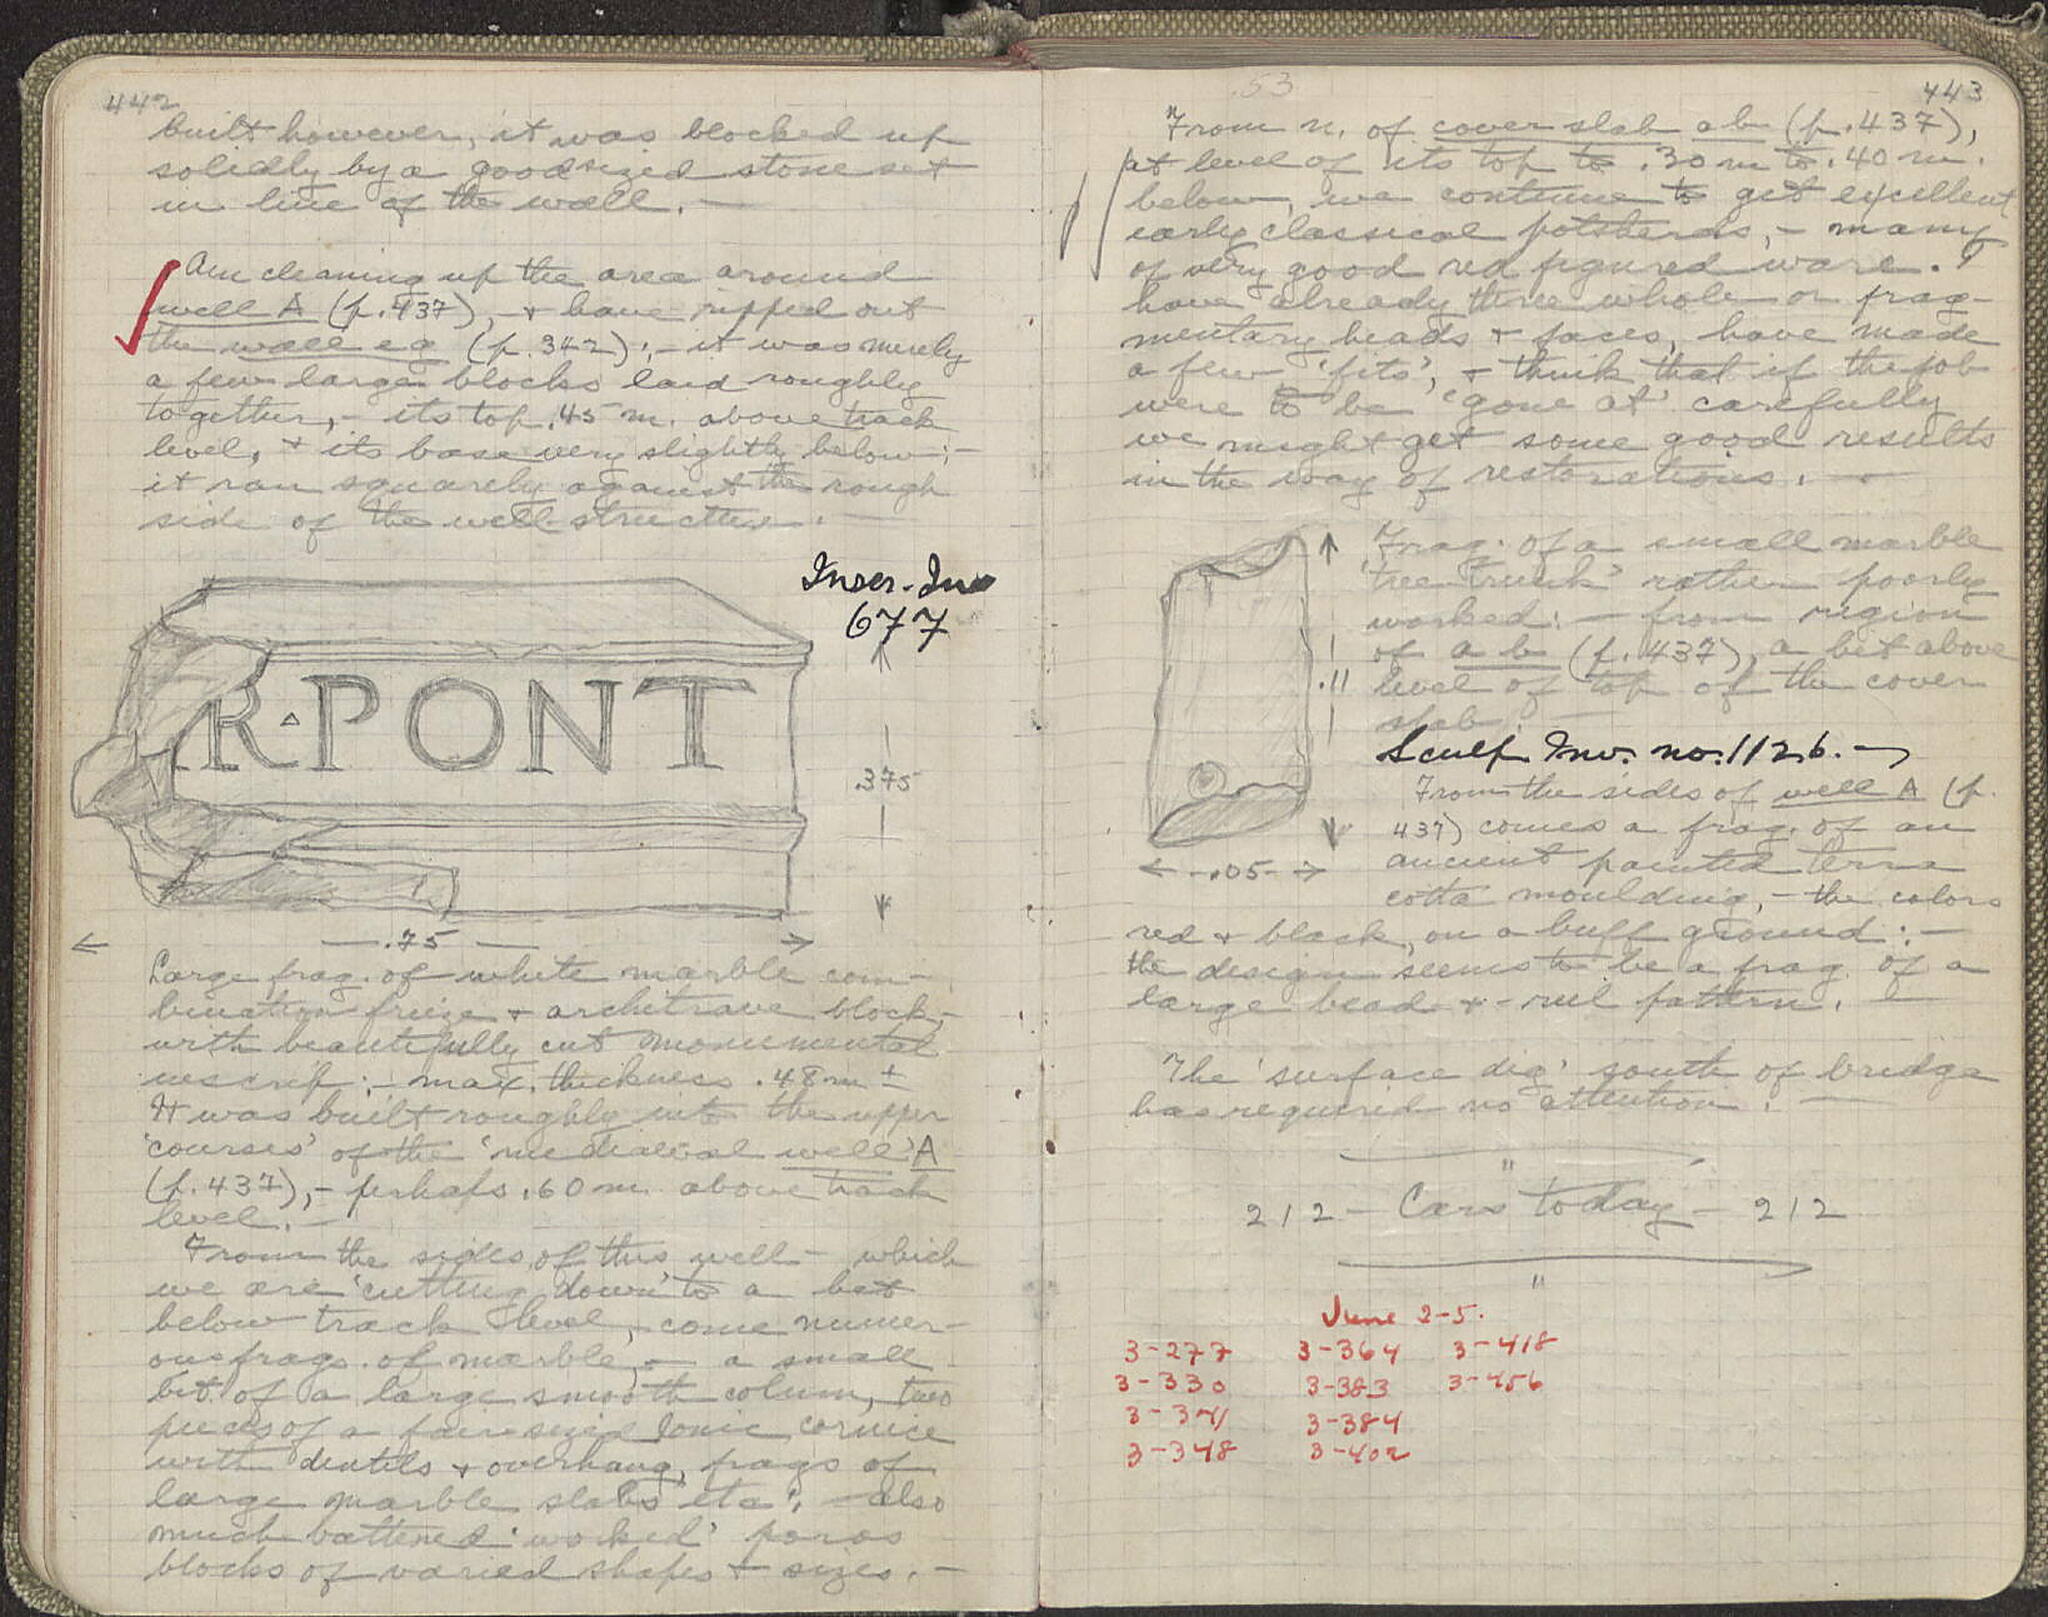 442
built however, it was blocked up
solidly by a good sized stone set
in line of the wall. —
Am cleaning up the area around
well A (p. 437), — + have ripped out
the wall eg (p. 342); — it was merely
a few large blocks laid roughly
together, — its top .45 m. above track
level, + its base very slightly below; —
it ran squarely against the rough
side of the well structure. —
Inscr. Inv
677
R·PONT
.375
.75
Large frag. of white marble com-
bination frieze + architrave block, —
with beautifully cut monumental
inscrip; — max. thickness .48 m ±
It was built roughly into the upper
'courses' of the 'mediaeval well' A
(p. 437), — perhaps .60 m. above track
level. —
From the sides of this well — which
we are 'cutting down' to a bit
below track level, — come numer-
ous frags. of marble, — a small
bit of a large smooth column, two
pieces of a fair sized Ionic cornice
with dentils + overhang, frags of
large marble slabs etc. — also
much battered 'worked' poros
blocks of varied shapes + sizes. —
53
443
From n. of cover slab ab (p. 437),
at level of its top to .30 m to .40 m.
below, we continue to get excellent
early classical potsherds, — many
of very good red figured ware. I
have already three whole or frag-
mentary heads + faces, have made
a few 'fits', + think that if the job
were to be 'gone at' carefully
we might get some good results
in the way of restorations. —
Frag. of a small marble
'tree trunk' rather poorly
worked: — from region
of ab (p. 437), a bit above
level of top of the cover
slab. —
.11
.05
Sculp. Inv. no. 1126. —
From the sides of well A (p.
437) comes a frag. of an
ancient painted terra
cotta moulding, — the colors
red + black, on a buff ground: —
the design seems to be a frag. of a
large bead - + - reel pattern. —
The 'surface dig' south of bridge
has required no attention. —
"
212 — Cars today — 212
"
June 2-5.
3-277 3-364 3-418
3-330 3-383 3-456
3-341 3-384
3-348 3-402